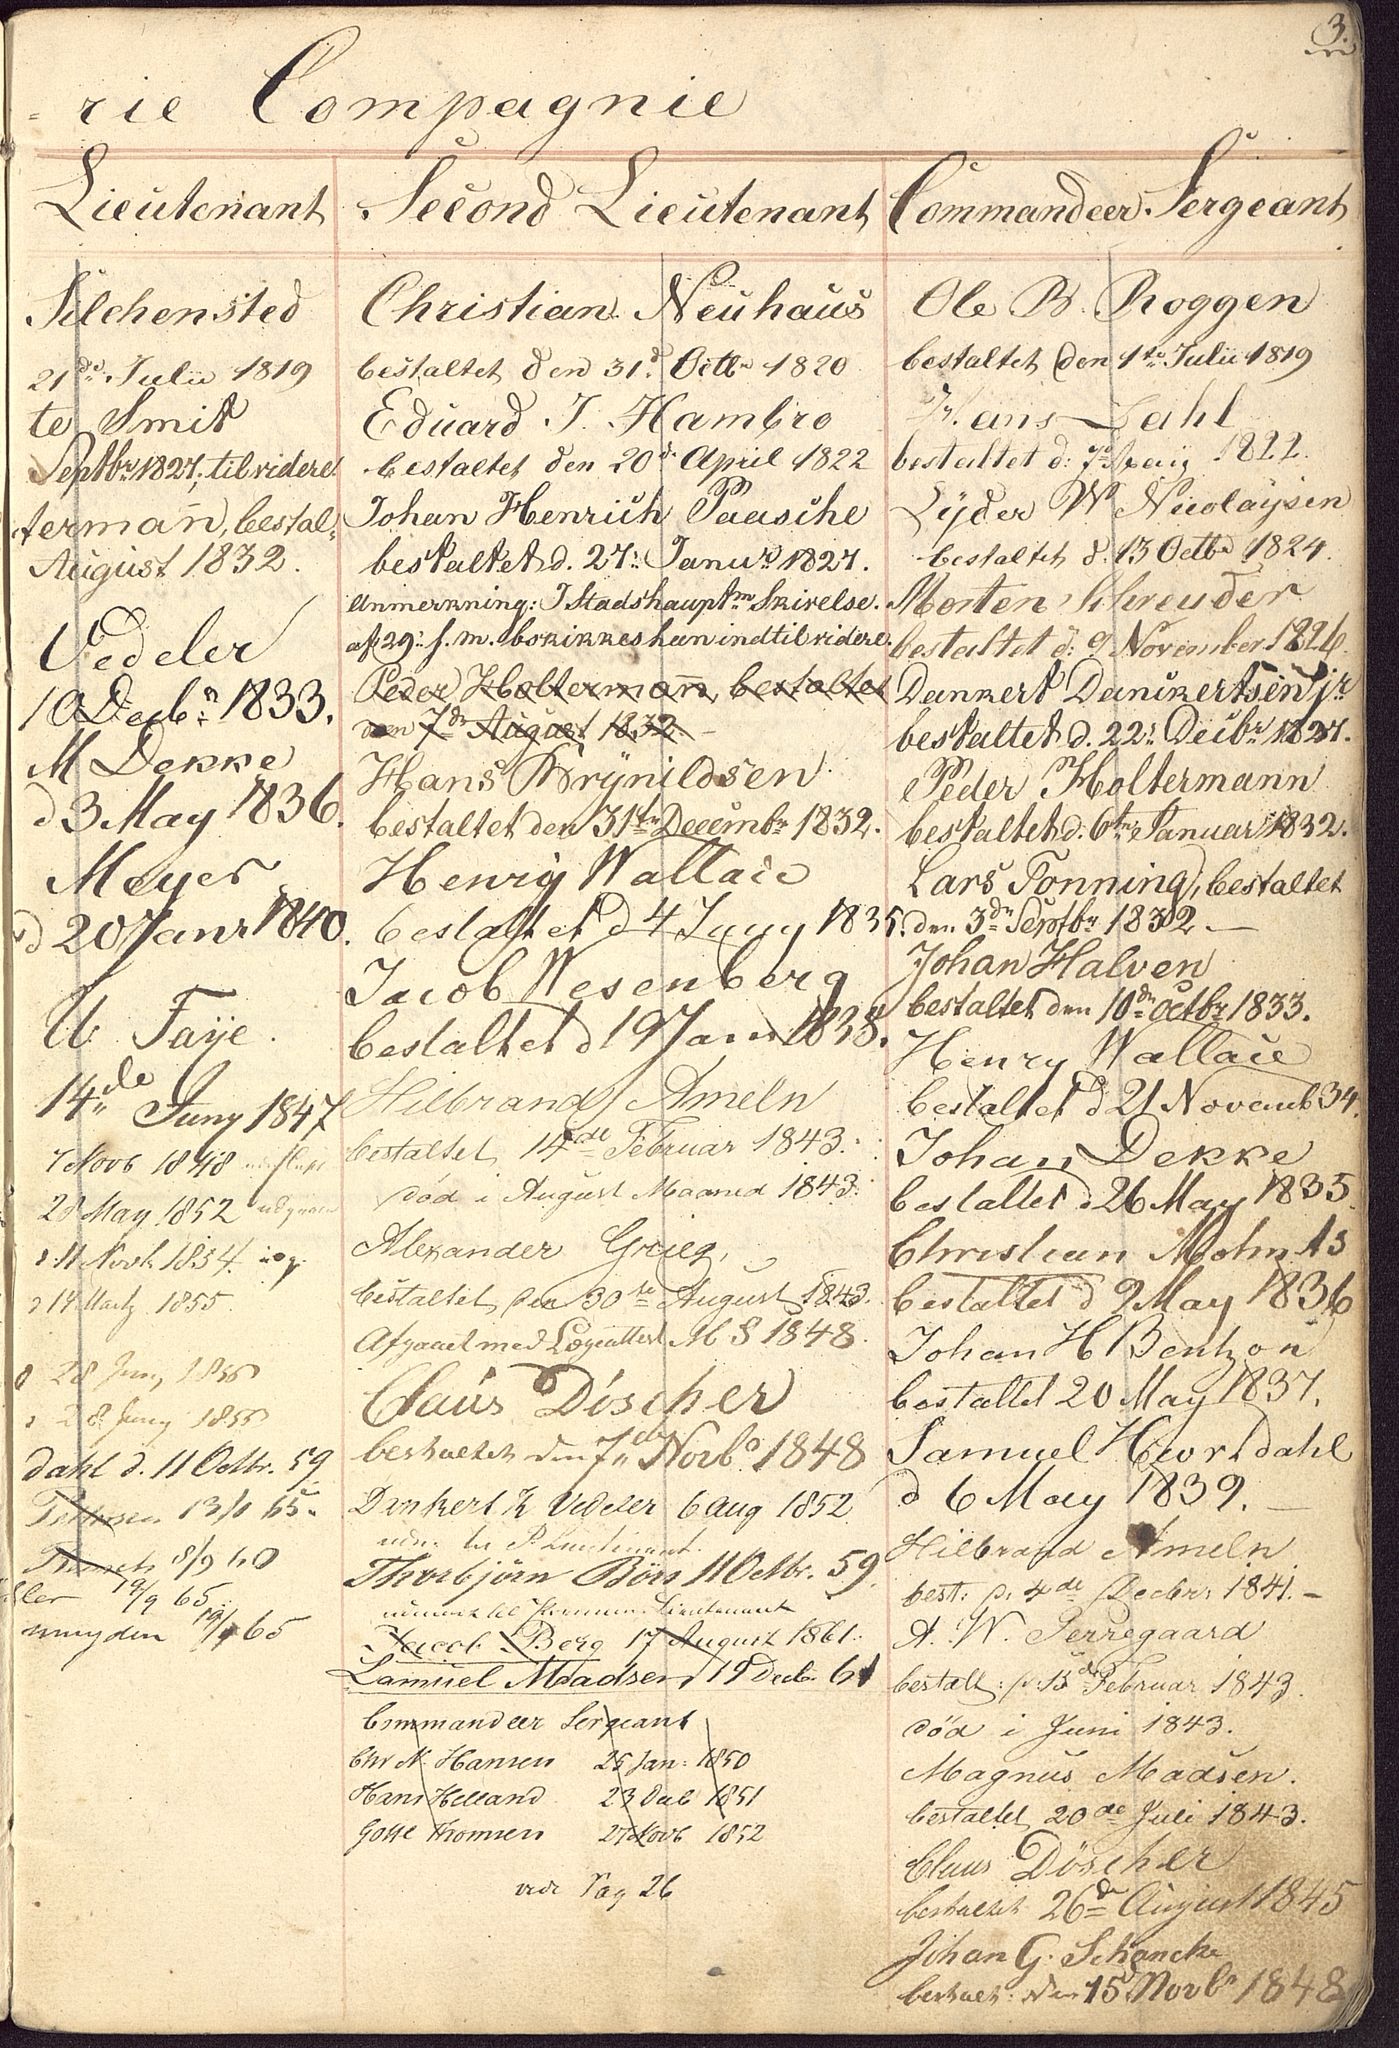 3.
-rie Compagnie
Lieutenant
Silchensted
21de Julii 1819
te Smit
Septbr 1827, til videre
termañ, bestal-
August 1832.
Vedeler
10 Decbr 1833.
M Dekke
d 3 May 1836.
Meyer
d 20 Janr 1840.
U Faÿe.
14de Juny 1847
7 Novb 1848
28 May 1852
11 Novb 1854
14 Martz 1855.
28 Juny 1855
28 Juny 1855
dahl d. 11 Octbr. 59
13/1 65.
8/9 60
19/9 65
19/9 65
Second Lieutenant
Christian Neuhaus
bestaltet den 31d Octbr 1820
Eduard I. Hambro
bestaltet den 20de April 1822
Johan Henrich Paasche
bestaltet d. 27: Januar 1827.
Anmerkning: I Stadshauptm Skrivelse
af 29: s. m. bortkikkes han indtil videre.
Peder Holtermañ, bestaltet
den 7de August 1832.
Hans Brÿnildsen
bestaltet den 31te Decembr 1832.
Henrig Wallace
bestaltet d 4 Juny 1835.
Jacob Wesenberg
bestaltet d 19 Janr 1838.
Hilbrand Ameln
bestaltet 14de Februar 1843.
død i August Maaned 1843.
Alexander Grieg,
bestaltet den 30te August 1843.
Afgaaet med Lægeattest M S 1848.
Claus Döscher
bestaltet den 7de Novb 1848
Dankert K Vedeler 6 Aug 1852
udn. til P. Lieutenant.
Thorbjörn Börs 11 Octbr. 59.
til Premier Lieutenant
Jacob Berg 17 August 1861.
Samuel Madsen 19 Decb. 61
Commandeer Sergeant
Chr N. Hansen 25 Jan: 1850
Hans Helland 23 Deb 1851
Thomsen 27 Novb 1852
vide Pag 26
Commandeer Sergeant
Ole B. Roggen
bestaltet den 1te Julii 1819
Hans Dahl
bestaltet d: 7de Maij 1822.
Lÿder W Nicolaÿsen
bestaltet d. 13 Octbr 1824.
Morten Schreuder
bestaltet d: 9 November 1826.
Dankert Danckertsen jr
bestaltet d. 22: Decbr 1827.
Peder Holtermann
bestaltet d. 6te Januar 1832.
Lars Tonning, bestaltet
den 3de Septbr 1832.
Johan Halven
bestaltet den 10de Octbr 1833.
Henry Wallace
bestaltet d 21 Novemb 34.
Johan Dekke
bestaltet d 26 May 1835.
Christian Mohn AS
bestaltet d 9 May 1836
Johan H Bentzon
bestaltet 20 May 1837.
Samuel Hiortdahl
d 6 May 1839.
Hilbrand Ameln
best: p. 4de Decbr: 1841.
A. W. Perregaard
bestalt: p. 15de Februar 1843.
død i Juni 1843.
Magnus Madsen.
bestaltet 20de Juli 1843.
Claus Döscher
bestaltet 26de August 1845
Johan G. Schancke
bestalt: den 15d Novbr 1848